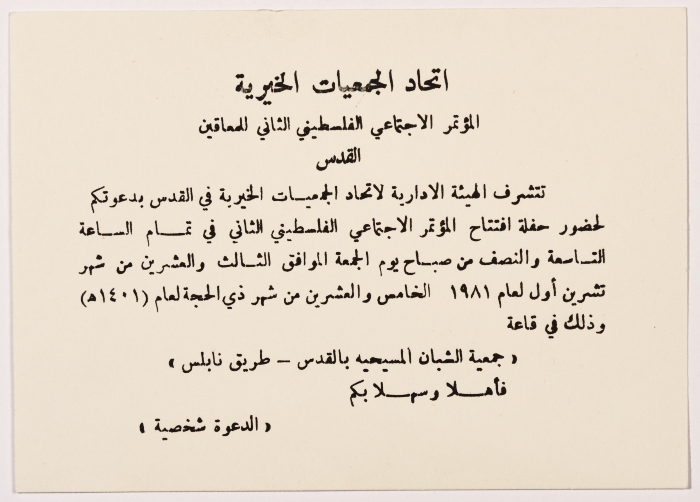 اتحاد الجمعيات الخيرية
المؤتمر الاجتماعي الفلسطيني الثاني للمعاقين
القدس
تتشرف الهيئة الادارية لاتحاد الجمعيــات الخيرية في القدس بدعوتكم
لحضور حفلة افتتاح المؤتمر الاجتماعي الفلسطيني الثاني في تمــــام الســاعة
التــاسعة والنصف من صبــاح يوم الجمعة الموافق الثــالث والعشرين من شهر
تشرين أول لعام ١٩٨١ الخامس والعشرين من شهر ذي الحجة لعام (١٤٠١هـ)
وذلك في قاعة
« جمعية الشبان المسيحيه بالقدس – طريق نابلس »
فأهــــلا وسهــــلا بكم
« الدعوة شخصية »